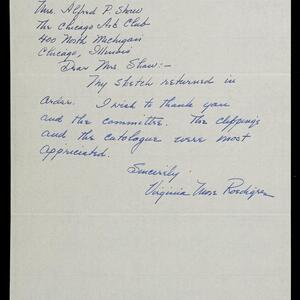 Mrs. Alfred P. Shaw
The Chicago Arts Club
400 North Michigan
Chicago, Illinois
Dear Mrs. Shaw:-
My sketch returned in
order. I wish to thank you
and the committee. The clippings
and the catalogue were most
appriciated.
Sincerely
Virginia True